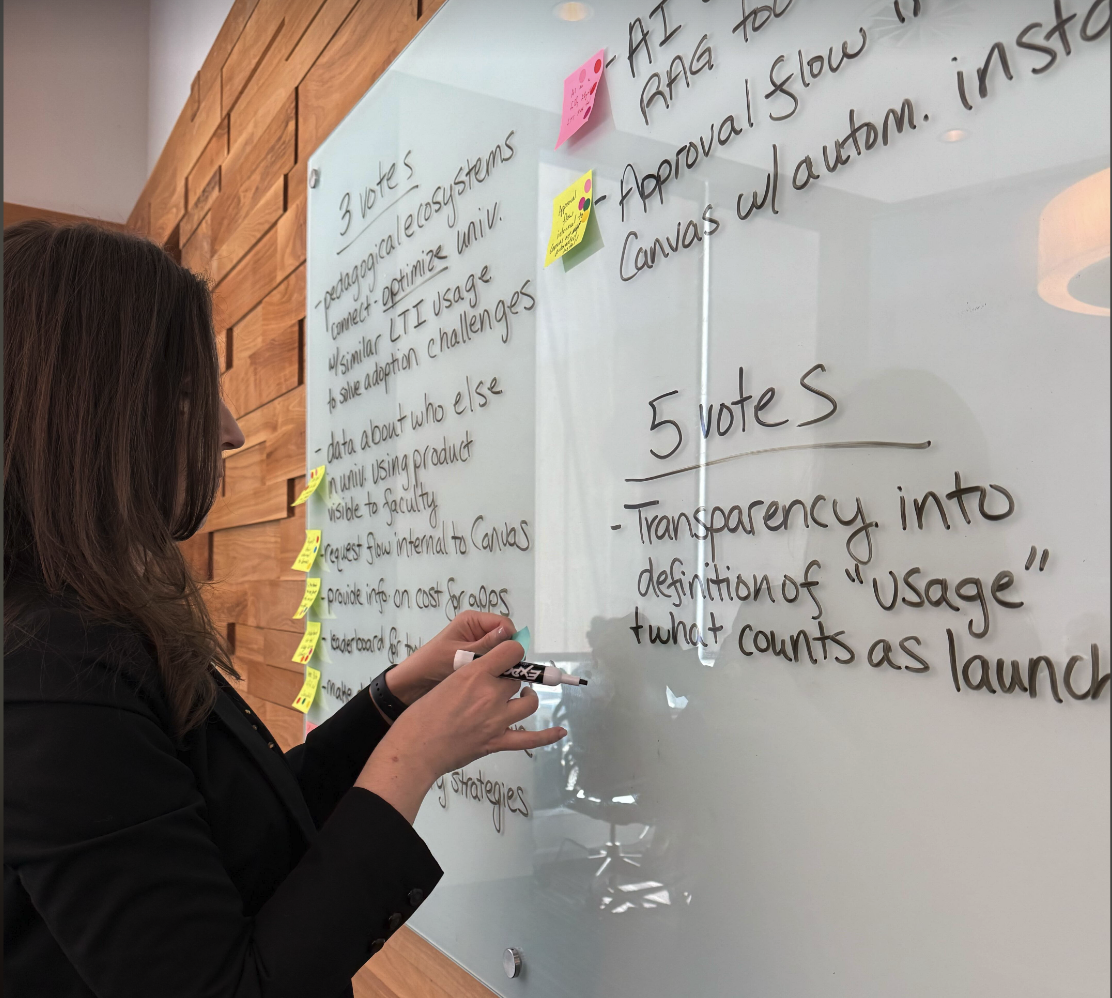 3 votes
- pedagogical ecosystems
connect - optimize univ.
w/similar LTI usage
to solve adoption challenges
- data about who else
in univ. using product
visible to faculty
- request flow internal to Canvas
- provide info on cost for apps
- leaderboard for
- make
strategies
- AI
RAG
- Approval flow
Canvas w/ autom.
5 votes
- Transparency into
definition of "usage"
+ what counts as launch
EXPO